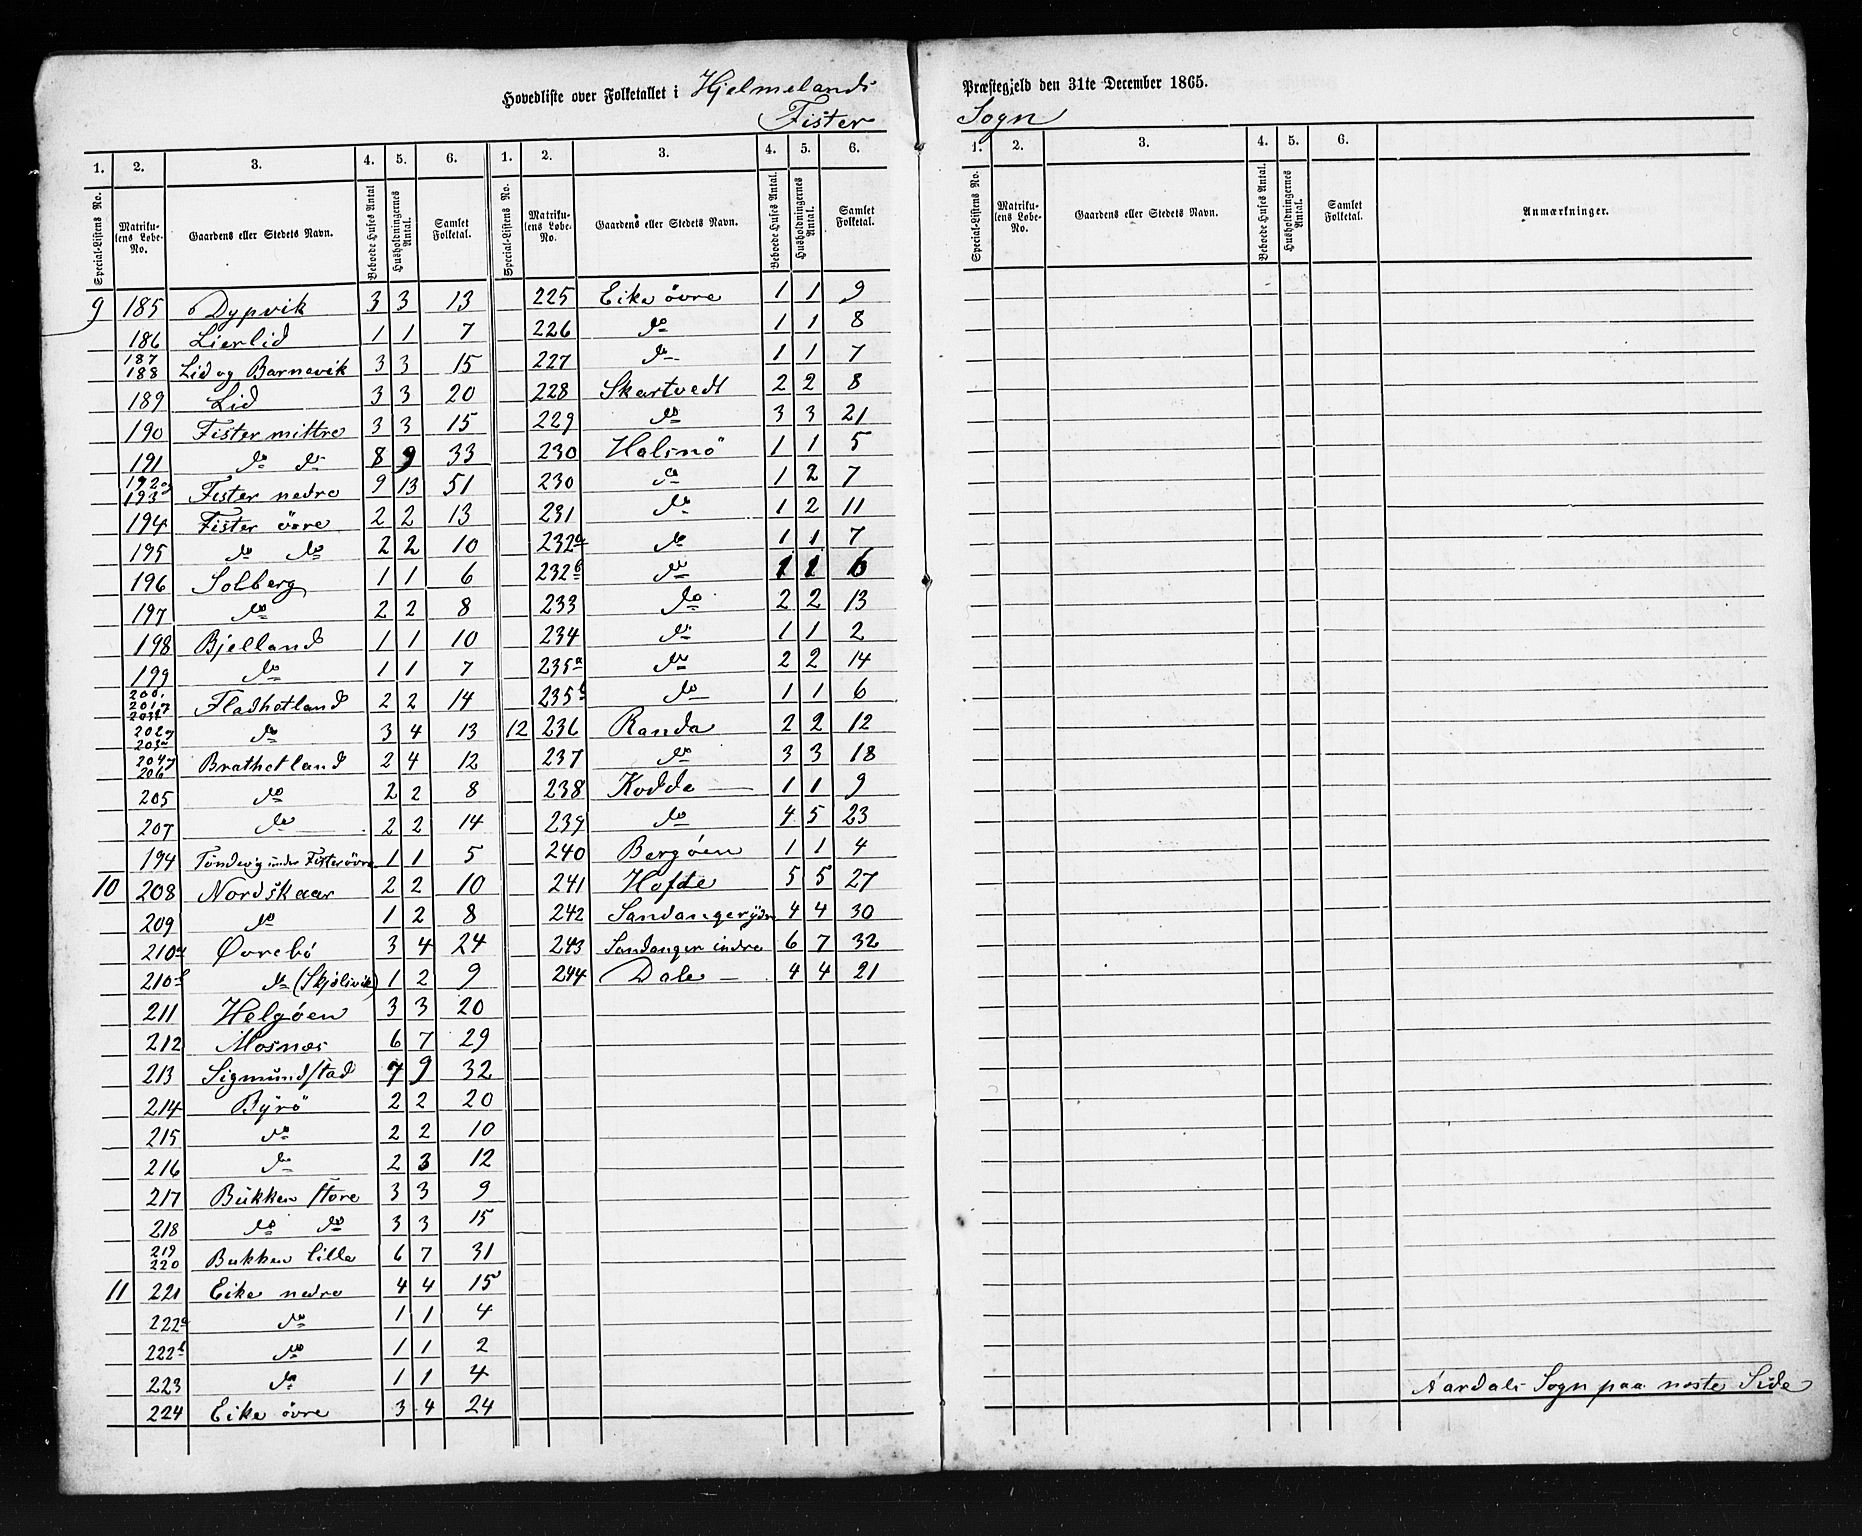 Hovedliste over Folketallet i Hjelmelands Præstegjeld den 31te December 1865.
Fister Sogn
1. 2. 3. 4. 5. 6. 1. 2. 3. 4. 5. 6. 1. 2. 3. 4. 5. 6.
Special-Listens No. Matrikulens Løbe-No. Gaardens eller Stedets Navn. Beboede Huses Antal Husholdningernes Antal. Samlet Folketal. Special-Listens No. Matrikulens Løbe-No. Gaardens eller Stedets Navn. Beboede Huses Antal. Husholdningernes Antal. Samlet Folketal. Special-Listens No. Matrikulens Løbe-No. Gaardens eller Stedets Navn. Beboede Huses Antal. Husholdningernes Antal. Samlet Folketal. Anmærkninger.
9 185 Dypvik 3 3 13
186 Lierlid 1 1 7
187 188 Lid og Barnavik 3 3 15
189 Lid 3 3 20
190 Fister mittre 3 3 15
191 do do 8 9 33
192 og 193 Fister nedre 9 13 51
194 Fister övre 2 2 13
195 do do 2 2 10
196 Solberg 1 1 6
197 do 2 2 8
198 Bjelland 1 1 10
199 do 1 1 7
200, 201 og Fladhetland 2 2 14
202 og 203a do 3 4 13
204 og 206 Brathetland 2 4 12
205 do 2 2 8
207 do 2 2 14
194 Töndevig under Fister övre 1 1 5
10 208 Nordskaar 2 2 10
209 do 1 2 8
210a Øvrebö 3 4 24
210b do (Skjölivik) 1 2 9
211 Helgöen 3 3 20
212 Mosnæs 6 7 29
213 Sigmundstad 7 9 32
214 Byrö 2 2 20
215 do 2 2 10
216 do 2 3 12
217 Bukken store 3 3 9
218 do do 3 3 15
219 220 Bukken lille 6 7 31
11 221 Eike nedre 4 4 15
222a do 1 1 4
222b do 1 1 2
223 do 1 1 4
224 Eike övre 3 4 24
225 Eike övre 1 1 9
226 do 1 1 8
227 do 1 1 7
228 Skartvedt 2 2 8
229 do 3 3 21
230 Halsnö 1 1 5
230 do 1 2 7
231 do 1 2 11
232a do 1 1 7
232b do 1 1 6
233 do 2 2 13
234 do 1 1 2
235a do 2 2 14
235b do 1 1 6
12 236 Randa 2 2 12
237 do 3 3 18
238 Kodde 1 1 9
239 do 4 5 23
240 Bergöen 1 1 4
241 Hofte 5 5 27
242 Sandanger ydre 4 4 30
243 Sandanger indre 6 7 32
244 Dale 4 4 21
Aardals Sogn paa næste Side